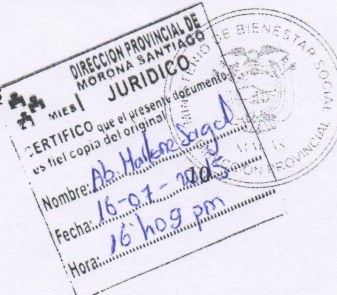 DIRECCION PROVINCIAL DE
MORONA SANTIAGO
MIES JURIDICO
CERTIFICO que el presente documento
es fiel copia del original
Nombre: Ab.
Fecha: 16-07-2015
Hora: 16h09 pm
DE BIENESTAR SOCIAL
PROVINCIAL